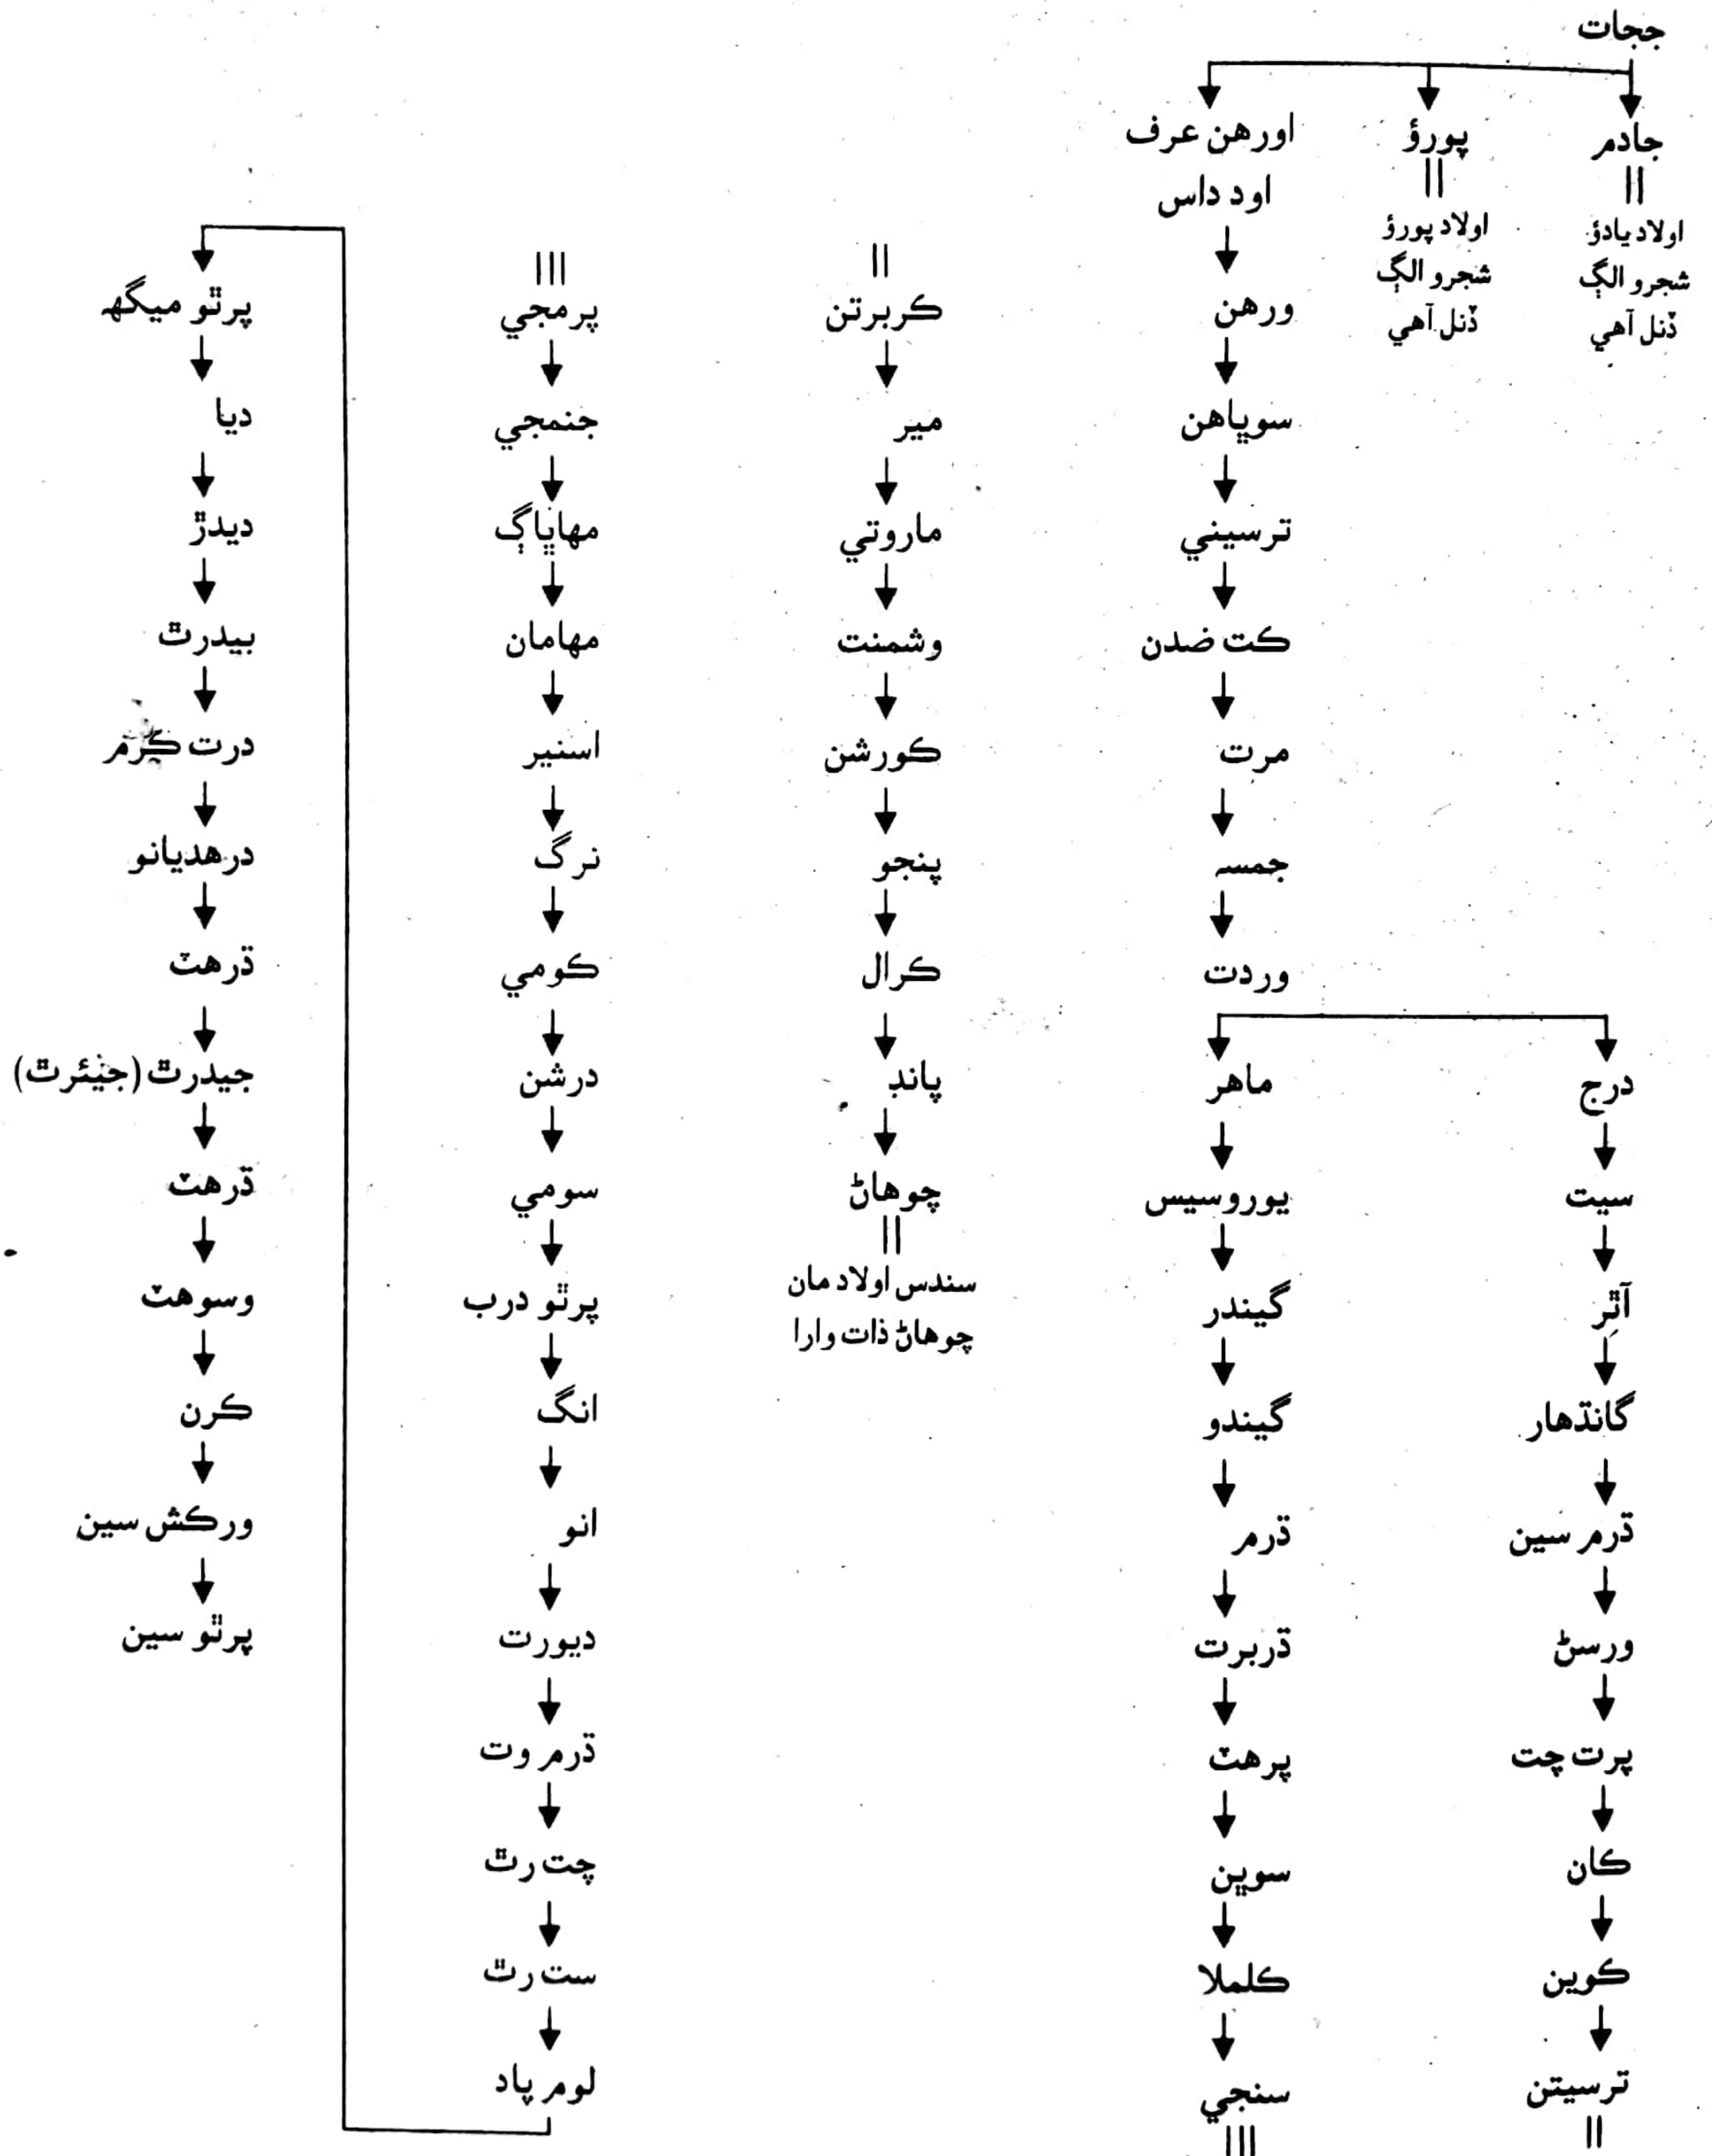 ججات
جادم
اولاد يادؤ
شجرو الڳ
ڏنل آهي
پورؤ
اولاد پورؤ
شجرو الڳ
ڏنل آهي
اورهن عرف
اود داس
ورهن
سوڀاهن
ترسيني
ڪت ضدن
مرت
جمسہ
وردت
درج
سيت
آٿِر
گانڌهار
ڌرم سين
ورسڻ
پرت چت
ڪان
ڪوين
ترسيتن
ماهر
يوروسيس
گيندر
گيندو
ڌرم
ڌربرت
پرهٽ
سوڀن
ڪلملا
سنجي
ڪربرتن
مير
ماروتي
وشمنت
ڪورشن
پنجو
ڪرال
پاند
چوهاڻ
سندس اولاد مان
چوهاڻ ذات وارا
پرمجي
جنمجي
مهاڀاڳ
مهامان
اسنير
نرگ
ڪومي
درشن
سومي
پرٿو درب
انگ
انو
ديورت
ڌرم وت
چت رٿ
ست رٿ
لوم پاد
پرٿو ميگهہ
ديا
ديدڙ
بيدرٿ
درت ڪرم
درهديانو
ڌرهٽ
جيدرٿ (جيئرٿ)
ڌرهٽ
وسوهٽ
ڪرن
ورڪش سين
پرٿو سين